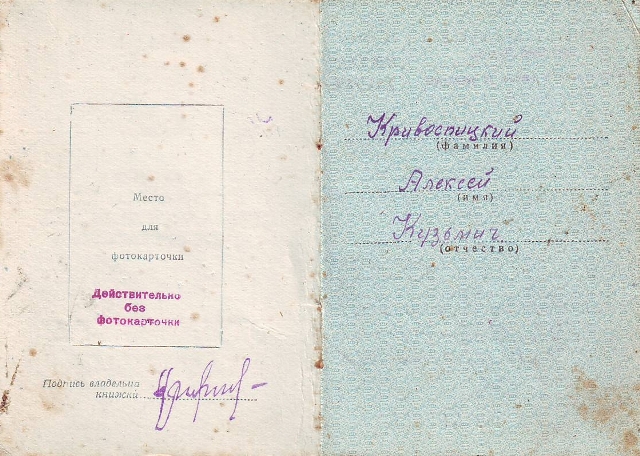 Место
для
фотокарточки
Действительно
без
фотокарточки
Подпись владельца
книжки
Кривоспицкий
(фамилия)
Алексей
(имя)
Кузьмич
(отчество)